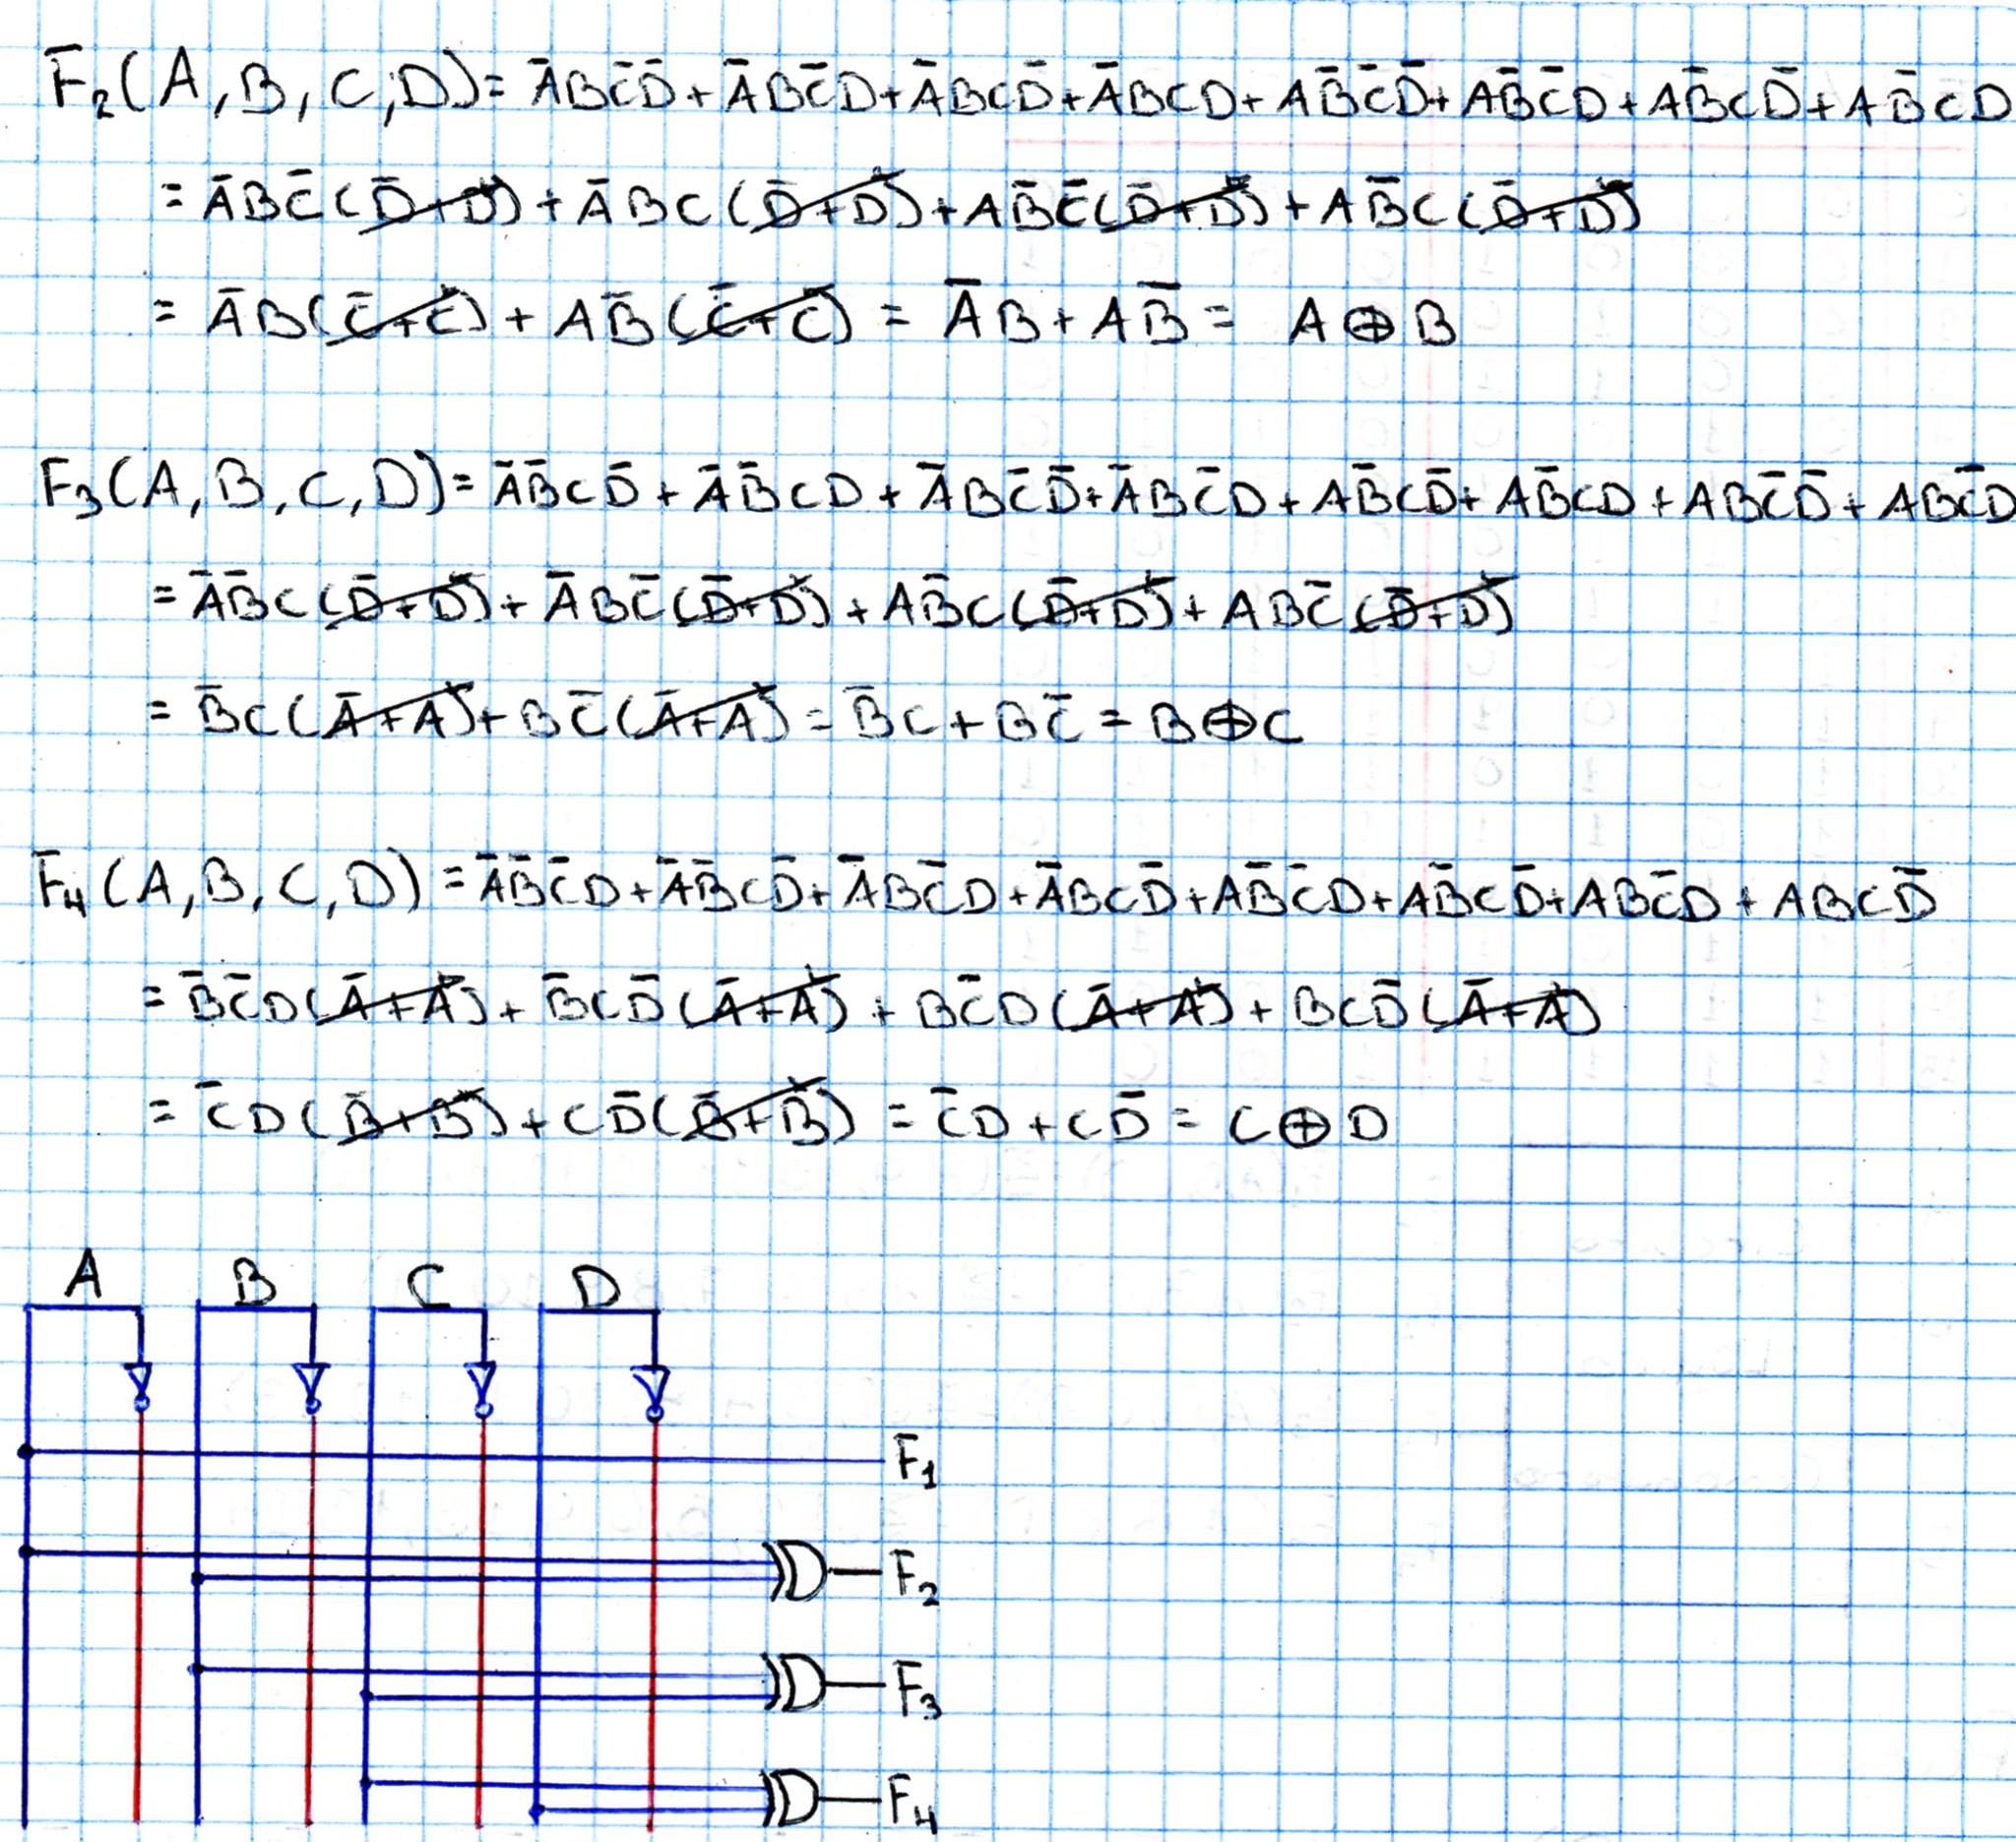 F₂(A,B,C,D)= A̅BC̅D̅+A̅BC̅D+A̅BCD̅+A̅BCD+AB̅C̅D̅+AB̅C̅D+AB̅CD̅+AB̅CD
= A̅BC̅(D̅+D)+A̅BC(D̅+D)+AB̅C̅(D̅+D)+AB̅C(D̅+D)
= A̅B(C̅+C)+AB̅(C̅+C) = A̅B+AB̅ = A⊕B
F₃(A,B,C,D)= A̅B̅CD̅+A̅B̅CD+A̅BC̅D̅+A̅BC̅D+AB̅CD̅+AB̅CD+ABC̅D̅+ABC̅D
= A̅B̅C(D̅+D)+A̅BC̅(D̅+D)+AB̅C(D̅+D)+ABC̅(D̅+D)
= B̅C(A̅+A)+BC̅(A̅+A)= B̅C+BC̅ = B⊕C
F₄(A,B,C,D) = A̅B̅C̅D+A̅B̅CD̅+A̅BC̅D+A̅BCD̅+AB̅C̅D+AB̅CD̅+ABC̅D+ABCD̅
= B̅C̅D(A̅+A)+B̅CD̅(A̅+A)+BC̅D(A̅+A)+BCD̅(A̅+A)
= C̅D(B̅+B)+CD̅(B̅+B) = C̅D+CD̅ = C⊕D
A B C D
F₁
F₂
F₃
F₄